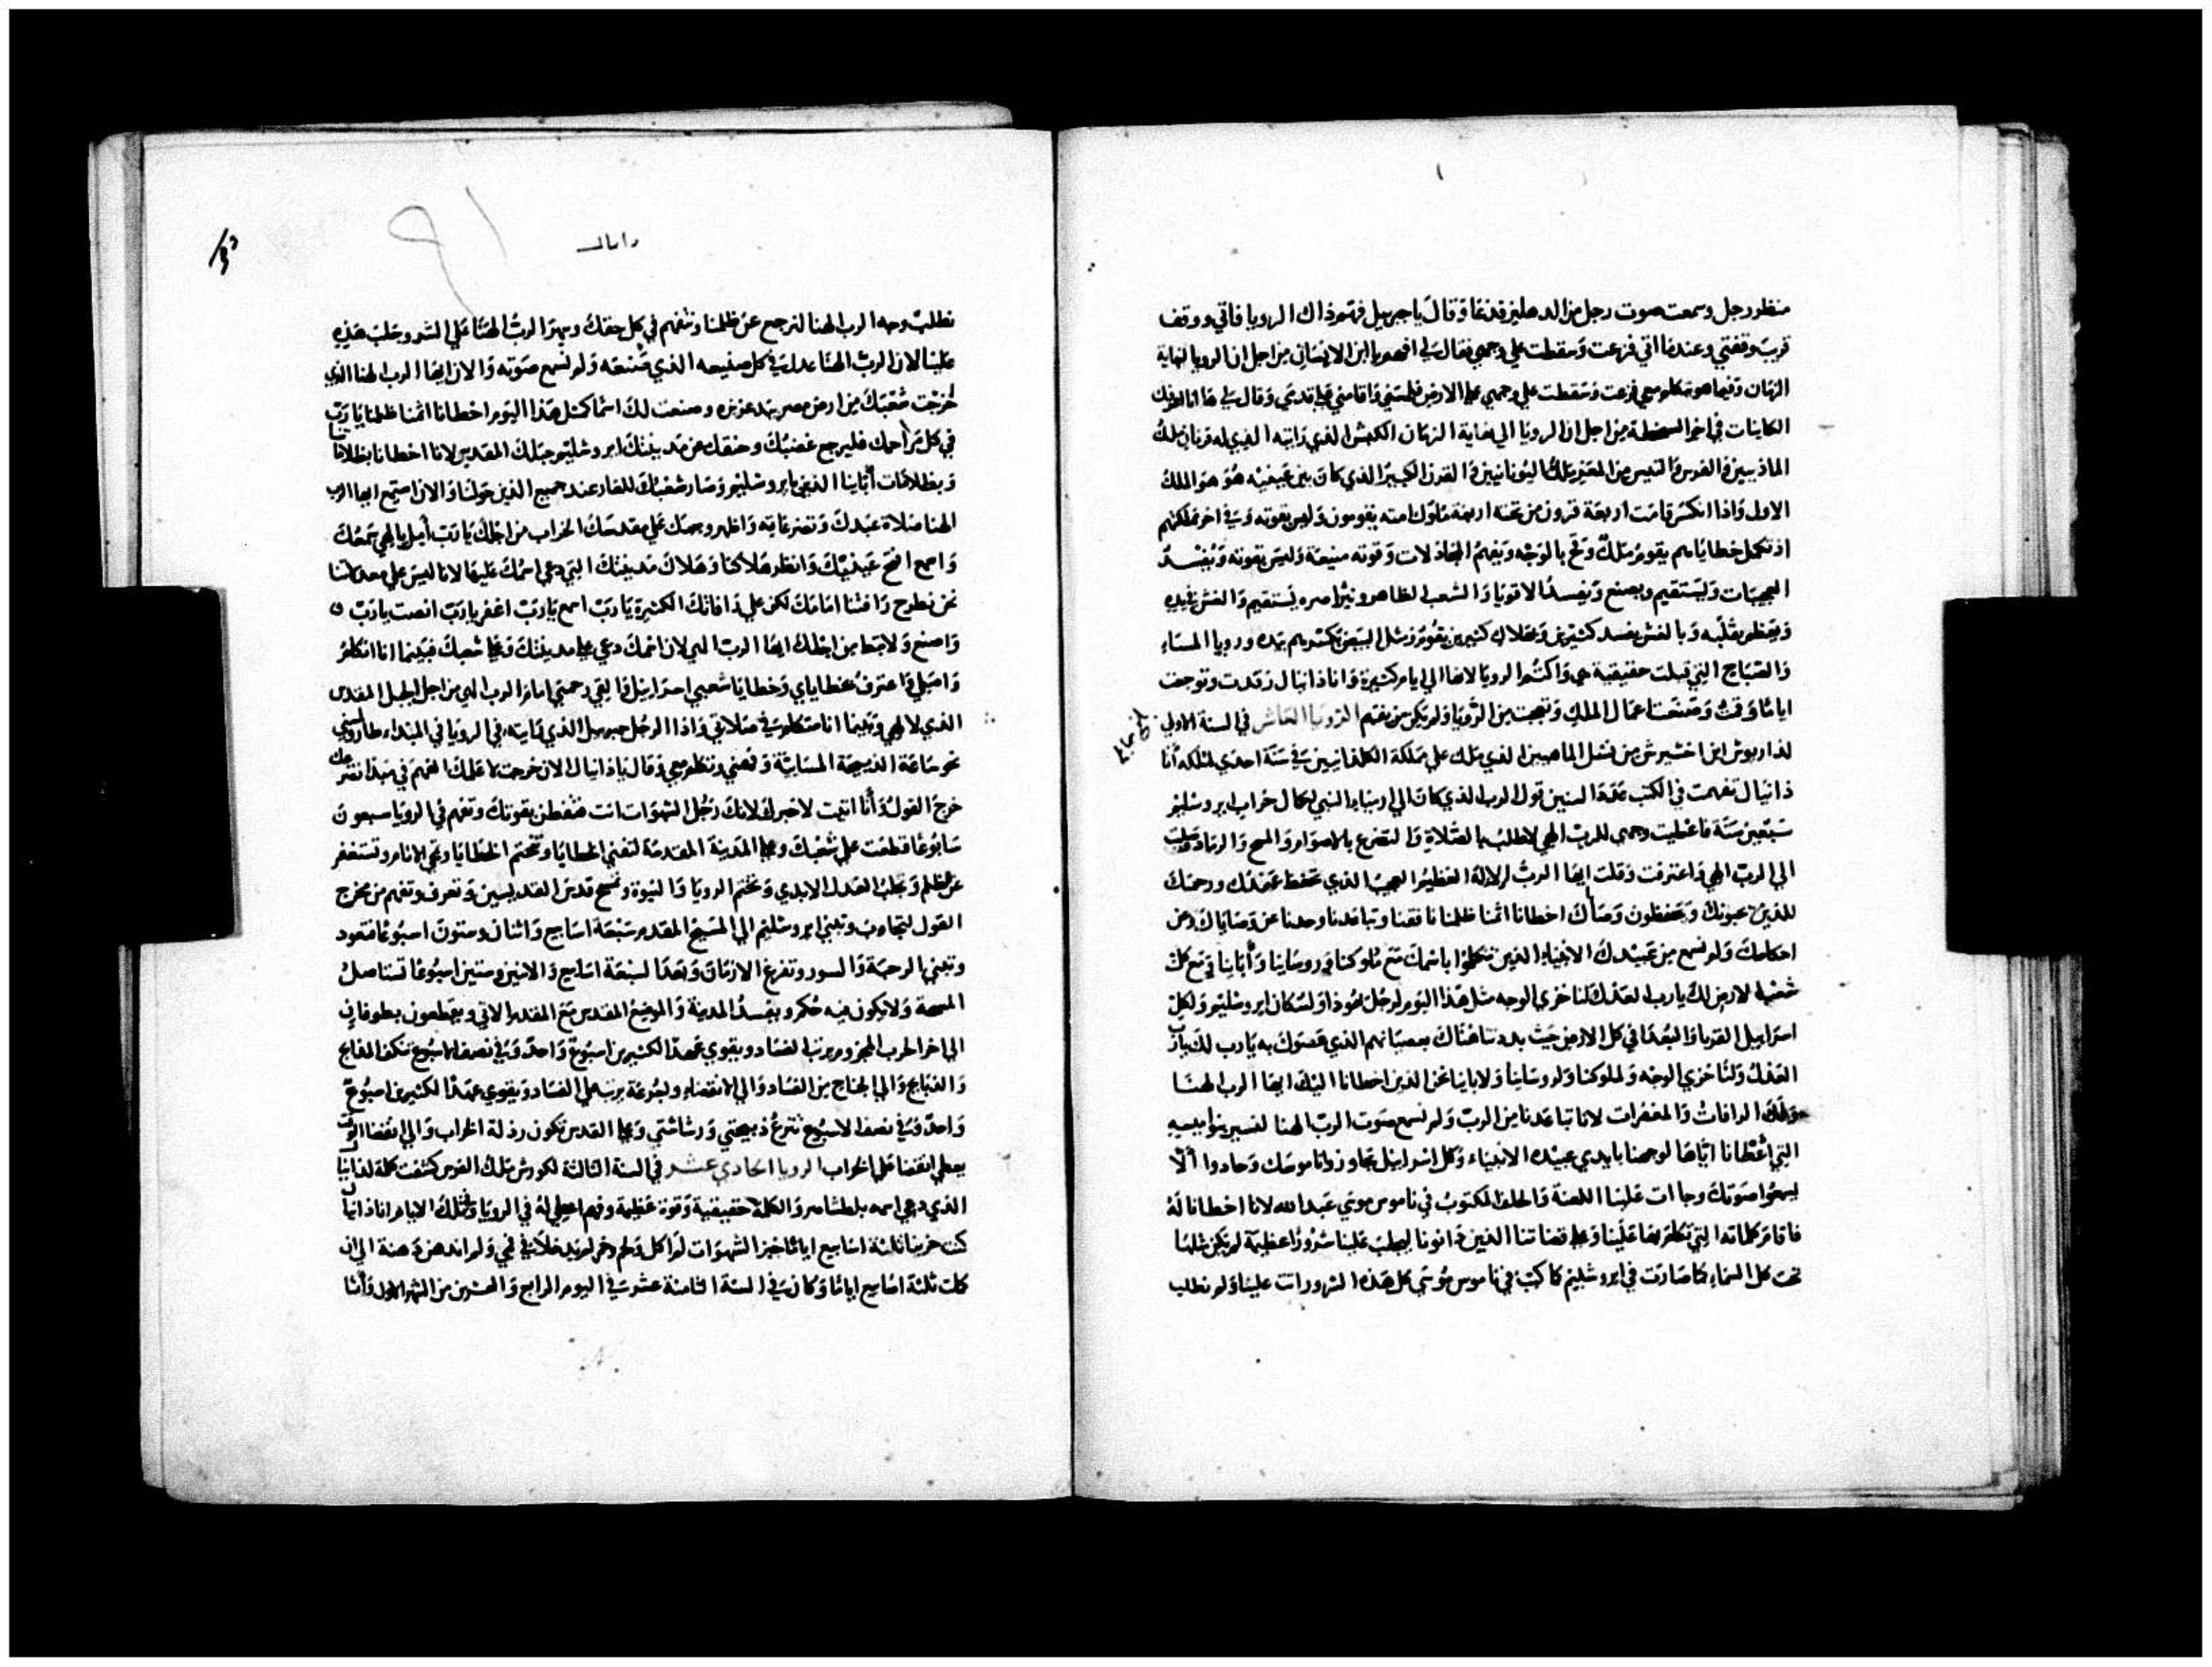 منظر رجل وسمعت صوت رجل من الدهليز قد دعا وقال يا جبريل فهم ذاك الرويا فاتي ووقف
قرب وقفتي وعندما اتي فزعت وسقطت علي وجهي فقال لي افهم يا ابن الانسان من اجل ان الرويا لنهاية
الزمان وفيما هو يتكلم معي فزعت وسقطت علي وجهي علي الارض فلمسني واقامني علي قدمي وقال لي ها انا اعرفك
الكاينات في اخر السخطة من اجل ان الرويا الي نهاية الزمان الكبش الذي رايته الذي له قرنان ملك
الماذيين والفرس والتيس من المعز ملك اليونانيين والقرن الكبير الذي كان بين عينيه هو هو الملك
الاول واذا انكسر قامت اربعة قرون من تحته اربعة ملوك امته يقومون وليس بقوته وفي اخر مملكتهم
اذ تكمل خطاياهم يقوم ملك وقح بالوجه ويفهم المجادلات وقوته منيعة وليس بقوته ويفسد
العجيبات ويستقيم ويصنع ويفسد الاقويا والشعب الطاهر ونير اصره يستقيم والغش في يده
ويتعظم بقلبه وبالغش يفسد كثيرين وبهلاك كثيرين يقوم ومثل البيض يكسرهم بيده ورويا المساء
والصباح التي قيلت حقيقية هي واكتم الرويا لانها الي ايام كثيرة وانا ذانيال رقدت وتوجعت
اياما وقمت وصنعت اعمال الملك وتعجبت من الرويا ولم يكن من يفهم الرويا العاشر في السنة الاولي
لداريوش ابن اخشيرش من نسل الماصيين الذي ملك علي مملكة الكلدانيين في سنة احدي لملكه انا
ذانيال تفهمت في الكتب عدد السنين قول الرب الذي كان الي ارمياء النبي لكمال خراب ايروشليم
سبعين سنة فاعطيت وجهي للرب الهي لاطلب بالصلاة والتضرع بالاصوام والمسح والرماد وصليت
الي الرب الهي واعترفت وقلت ايها الرب الاله العظيم العجيب الذي تحفظ عهدك ورحمتك
للذين يحبونك ويحفظون وصاياك اخطانا اثمنا ظلمنا نافقنا وتباعدنا وحدنا عن وصاياك وعن
احكامك ولم نسمع من عبيدك الانبياء الذين تكلموا باسمك مع ملوكنا وروساينا وابآينا ومع كل
شعب الارض لك يا رب العدل ولنا خزي الوجه مثل هذا اليوم لرجل يهوذا ولسكان ايروشليم ولكل
اسراييل القربا والبعدا في كل الارض حيث بددتنا هناك بعصيانهم الذي عصوك به يا رب لك يا رب
العدل ولنا خزي الوجه ولملوكنا ولروساينا ولاباينا نحن الذين اخطانا اليك ايها الرب الهنا
ولك الرافات والمغفرات لانا تباعدنا من الرب ولم نسمع صوت الرب الهنا لنسير بنواميسه
التي اعطانا اياها لوجهنا بايدي عبيده الانبياء وكل اسراييل تجاوزوا ناموسك وحادوا الا
يسمعوا صوتك وجاات علينا اللعنة والحلف المكتوب في ناموس موسي عبد الله لانا اخطانا له
فاقام كلماته التي تكلم بها علينا وعلي قضاتنا الذين دانونا ليجلب علينا شرورا عظيمة لم يكن مثلها
تحت كل السماء كما صارت في ايروشليم كما كتب في ناموس موسي كل هذه الشرور اتت علينا ولم نطلب
دانيال
نطلب وجه الرب الهنا لنرجع عن ظلمنا ونتفهم في كل حقك وسهر الرب الهنا علي الشر وجلب هذه
علينا لان الرب الهنا عدل في كل صنيعه الذي صنعه ولم نسمع صوته والان ايها الرب الهنا الذي
اخرجت شعبك من ارض مصر بيد عزيزه وصنعت لك اسما كمثل هذا اليوم اخطانا اثمنا ظلمنا يا رب
في كل مراحمك فليرجع غضبك وحنقك عن مدينتك ايروشليم جبلك المقدس لانا اخطانا بظلاماتنا
وبظلامات اباينا الذين بايروشليم وصار شعبك للعار عند جميع الذين حولنا والان استمع ايها الرب
الهنا صلاة عبدك وتضرعاته واظهر وجهك علي مقدسك الخراب من اجلك يا رب أمل يا الهي سمعك
واسمع افتح عينيك وانظر هلاكنا وهلاك مدينتك التي دعي اسمك عليها لانا ليس علي معدلاتنا
نحن نطرح رافتنا امامك لكن علي رافاتك الكثيرة يا رب اسمع يا رب اغفر يا رب انصت يا رب
واصنع ولا تبطا من اجلك ايها الرب الهي لان اسمك دعي علي مدينتك وعلي شعبك فبينما انا اتكلم
واصلي واعترف بخطاياي وخطايا شعبي اسراييل والقي رحمتي امام الرب الهي من اجل الجبل المقدس
الذي لالهي وبينما انا متكلم في صلاتي واذا الرجل جبرييل الذي رايته في الرويا في المبداء طار ولمسني
نحو ساعة الذبيحة المسايية وفهمني وتكلم معي وقال يا ذانيال الان خرجت لاعلمك الفهم في مبدا تضرعك
خرج القول وأنا اتيت لاخبرك لانك رجل الشهوات انت فتفطن بقوتك وتفهم في الرويا سبعون
سابوعا قطعت علي شعبك وعلي المدينة المقدسة لتفني الخطايا وتختم الخطايا وتمحي الاثام وتستغفر
عن الظلم وتجلب العدل الابدي وتختم الرويا والنبوة وتمسح قدس القديسين وتعرف وتفهم من مخرج
القول لتجاوب وتبني ايروشليم الي المسيح المقدم سبعة اسابيع واثنان وستون اسبوعا فتعود
وتبني الرحبة والسور وتفرغ الازمان وبعد السبعة اسابيع والاثنين وستين اسبوعا تستاصل
المسحة ولا يكون فيه حكم ويفسد المدينة والموضع المقدس مع المقدم الاتي ويقطعون بطوفان
الي اخر الحرب المجزوم يرتب الفساد ويقوي عهدا لكثيرين اسبوع واحد وفي نصف الاسبوع تنكف المذابح
والذبايح والي الجناح من الفساد والي الانقضاء والسرعة يرتب علي الفساد ويقوي عهدا لكثيرين اسبوع
واحد وفي نصف الاسبوع تنزع ذبيحتي ورشاشتي وعلي القدس تكون رذلة الخراب والي انقضا الوقت
يعطي انقضا علي الخراب الرويا الحادي عشر في السنة الثالثة لكورش ملك الفرس كشفت كلمة لدانيال
الذي دعي اسمه بلطشاصر والكلمة حقيقية وقوة عظيمة وفهم اعطي له في الرويا وفي تلك الايام انا ذانيال
كنت حزينا ثلثة اسابيع اياما خبز الشهوات لم اكل ولحم وخمر لم يدخلا في فمي ولم اندهن دهنة الي ان
كملت ثلثة اسابيع اياما وكان في السنة الثامنة عشر في اليوم الرابع والعشرين من الشهر الاول وأنا